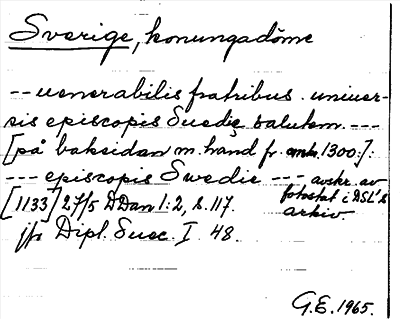 Sverige, konungadöme
-- uenerabilis fratribus. uniuer-
sis episcopis Suedię salutem. ---
[på baksidan m. hand fr. omkr. 1300:].
--- episcopis Swedie --- avskr. av
fotostat i DSL's
arkiv.
[1133] 27/5 DDan 1:2, s. 117.
jfr Dipl. Suec. I 48.
G.E. 1965.